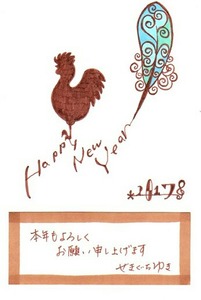 Happy New Year
*2017*
本年もよろしく
お願い申し上げます
せきぐちゆき